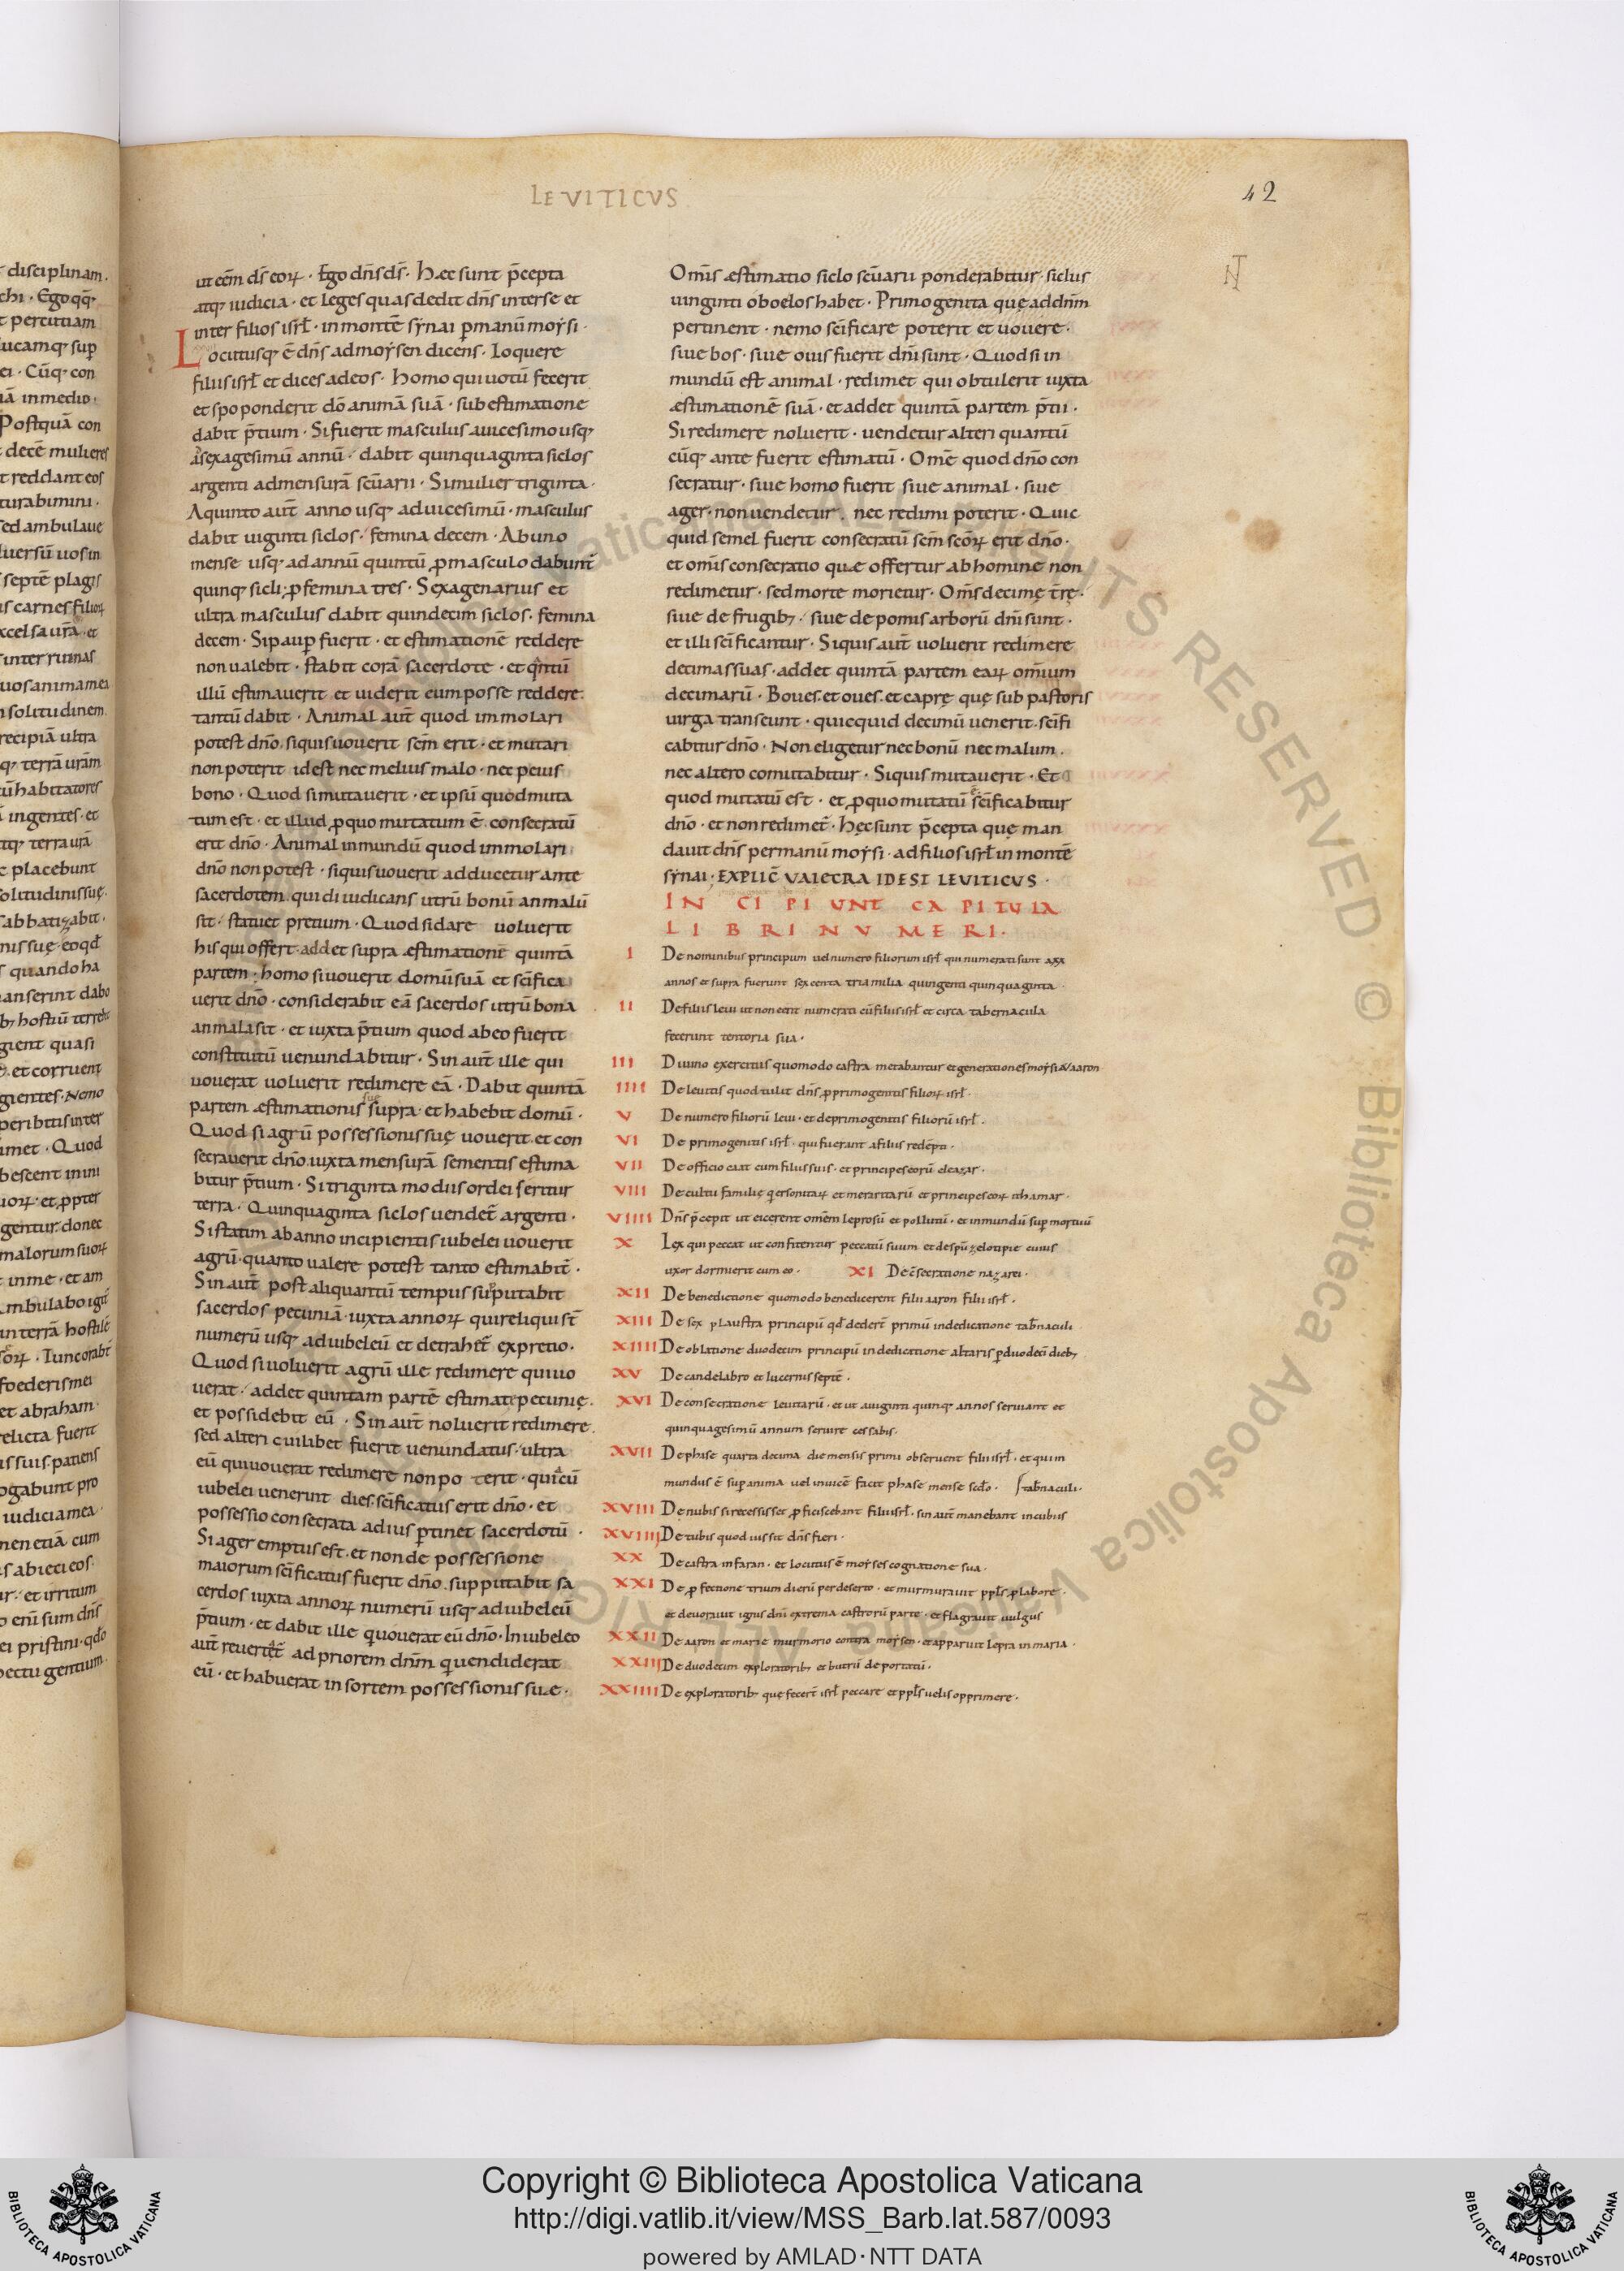 LEVITICVS
42
ut eēm ds̄ eoꝝ · Ego dn̄s ds̄ · Hec sunt p̄cepta
atq; iudicia · et leges quas dedit dn̄s inter se et
inter filios isrł · in monte synai p̱ manū moysi ·
Locutusq; ē dn̄s ad moysen dicens · Loquere
filiis isrł et dices ad eos · Homo qui uotū fecerit
et spoponderit dō animā suā · sub estimatione
dabit p̄tium · Si fuerit masculus a uicesimo usq;
ad sexagesimū annū · dabit quinquaginta siclos
argenti ad mensurā sc̄uarii · Si mulier triginta ·
A quinto aut̄ anno usq; ad uicesimū · masculus
dabit uiginti siclos · femina decem · Ab uno
mense usq; ad annū quintū ꝓ masculo dabunt̄
quinq; sicli; ꝓ femina tres · Sexagenarius et
ultra masculus dabit quindecim siclos · femina
decem · Si paup̱ fuerit · et estimationē reddere
non ualebit · stabit corā sacerdote · et qntū
illū estimauerit et uiderit eum posse reddere
tantū dabit · Animal aut̄ quod immolari
potest dn̄o, siquis uouerit sc̄m erit · et mutari
non poterit id est nec melius malo · nec peius
bono · Quod si mutauerit · et ipsū quod muta
tum est · et illud ꝓ quo mutatum ē consecratū
erit dn̄o · Animal inmundū quod immolari
dn̄o non potest · siquis uouerit adducetur ante
sacerdotem qui diiudicans utrū bonū an malū
sit · statuet pretium · Quod si dare uoluerit
his qui offert · addet supra æstimationē quintā
partem · homo si uouerit domū suā et sc̄ifica
uerit dn̄o · considerabit eā sacerdos utrū bona
an mala sit · et iuxta p̄tium quod ab eo fuerit
constitutū uenundabitur · Sin aut̄ ille qui
uouerat uoluerit redimere eā · Dabit quintā
partem æstimationis supra et habebit domū ·
Quod si agrū possessionis suę uouerit et con
secrauerit dn̄o iuxta mensurā sementis estima
bitur p̄tium · Si triginta modiis ordei seritur
terra · Quinquaginta siclos uendet̄ argenti ·
Si statim ab anno incipientis iubelei uouerit
agrū · quanto ualere potest tanto estimabit̄ ·
Sin aut̄ post aliquantū tempus supputabit
sacerdos pecuniā iuxta annoꝝ qui reliqui st̄
numerū usq; ad iubeleū et detrahet̄ ex pretio ·
Quod si uoluerit agrū ille redimere qui uo
uerat · addet quintam partē estimatę pecunię ·
et possidebit eū · Sin aut̄ noluerit redimere
sed alteri cuilibet fuerit uenundatus · ultra
eū qui uouerat redimere non poterit · quia cū
iubelei uenerint dies · sc̄ificatus erit dn̄o · et
possessio consecrata ad ius p̱tinet sacerdotū ·
Si ager emptus est · et non de possessione
maiorum sc̄ificatus fuerit dn̄o supputabit sa
cerdos iuxta annoꝝ numerū usq; ad iubeleū
p̄tium · et dabit ille qui uouerat eū dn̄o · In iubeleo
aut̄ reuertet̄ ad priorem dn̄m qui uendiderat
eū · et habuerat in sortem possessionis suæ ·
Omīs æstimatio siclo sc̄uarii ponderabitur · siclus
uinginti oboelos habet · Primogenita quę ad dn̄m
pertinent · nemo sc̄ificare poterit et uouere ·
siue bos · siue ouis fuerit dn̄i sunt · Quod si in
mundū est animal · redimet qui obtulerit iuxta
æstimationē suā · et addet quintā partem p̄tii ·
Si redimere noluerit · uendetur alteri quantū
cūq; ante fuerit estimatū · Omē quod dn̄o con
secratur · siue homo fuerit siue animal · siue
ager · non uendetur · nec redimi poterit · Quic
quid semel fuerit consecratū sc̄m sc̄oꝝ erit dn̄o ·
et omīs consecratio quæ offertur ab homine non
redimetur · sed morte morietur · Om̄s decimę t̄rę ·
siue de frugib; · siue de pomis arborū dn̄i sunt ·
et illi sc̄ificantur · Siquis aut̄ uoluerit redimere
decimas suas · addet quintā partem eaꝝ omīum
decimarū · Boues · et oues · et caprę quę sub pastoris
uirga transeunt · quicquid decimū uenerit · sc̄ifi
cabitur dn̄o · Non eligetur nec bonū nec malum ·
nec altero comutabitur · Siquis mutauerit · Et
quod mutatū est · et ꝓ quo mutatū sc̄ificabitur
dn̄o · et non redimet̄ · Hęc sunt p̄cepta quę man
dauit dn̄s per manū moysi · ad filios isrł in montē
synai · EXPLIC̄ VAIECRA ID EST LEVITICUS ·
INCIPIUNT CAPITULA
LIBRI NUMERI ·
I De nominibus principum uel numero filiorum isrł qui numerati sunt a xx
annos et supra fuerunt sexcenta tria milia quingenti quinquaginta ·
II De filiis leui ut non eēnt numerati cū filiis isrł et circa tabernacula
fecerunt tentoria sua ·
III Diuino exercitus quomodo castra metabantur et generationes moysi & aaron
IIII De leuitis quod tulit dn̄s ꝓ primogenitis filioꝝ isrł ·
V De numero filiorū leui · et de primogenitis filiorū isrł ·
VI De primogenitis isrł · qui fuerant a filiis redēpti ·
VII De officio caat cum filiis suis · et principes eorū eleazar ·
VIII De cultu familię gersonitaꝝ et meraritarū et principes eoꝝ ithamar ·
VIIII Dn̄s p̄cepit ut eicerent omēm leprosū et pollutū · et inmundū sup̱ mortuū
X Lex qui peccat ut confitentur peccatū suum et de spū zelotipie cuius
uxor dormierit cum eo · XI De c̄secratione nazarei ·
XII De benedictione quomodo benedicerent filii aaron filii isrł ·
XIII De sex plaustra principū qd̄ dedert̄ primū in dedicatione tab̄naculi
XIIII De oblatione duodecim principū in dedicatione altaris p̱ duodecī dieb;
XV De candelabro et lucernis septē ·
XVI De consecratione leuitarū · et ut a uiginti quinq; annos seruiant et
quinquagesimū annum seruire cessabis ·
XVII De phase quarta decima die mensis primi obseruent filii isrł · et qui in
mundus ē sup̱ anima uel in uice facit phase mense scd̄o · tab̄naculi ·
XVIII De nubis si recessisset ꝓficiscebant filii isrł · sin aut̄ manebant in cubiis
XVIIII De tubis quod iussit dn̄s fieri ·
XX De castra in faran · et locutus ē moyses cognatione sua ·
XXI De ꝓfectione trium dierū per deserto · et murmurauit ppl̄s ꝓ labore ·
et deuorauit ignis dn̄i extrema castrorū parte · et flagrauit uulgus
XXII De aaron et marie murmurio contra moysen · et apparuit lepra in maria ·
XXIII De duodecim exploratorib; et butrū de portatū ·
XXIIII De exploratorib; que fecert̄ isrł peccare et ppl̄s uelis opprimere ·
Copyright © Biblioteca Apostolica Vaticana
http://digi.vatlib.it/view/MSS_Barb.lat.587/0093
powered by AMLAD·NTT DATA
BIBLIOTECA APOSTOLICA VATICANA
BIBLIOTECA APOSTOLICA VATICANA